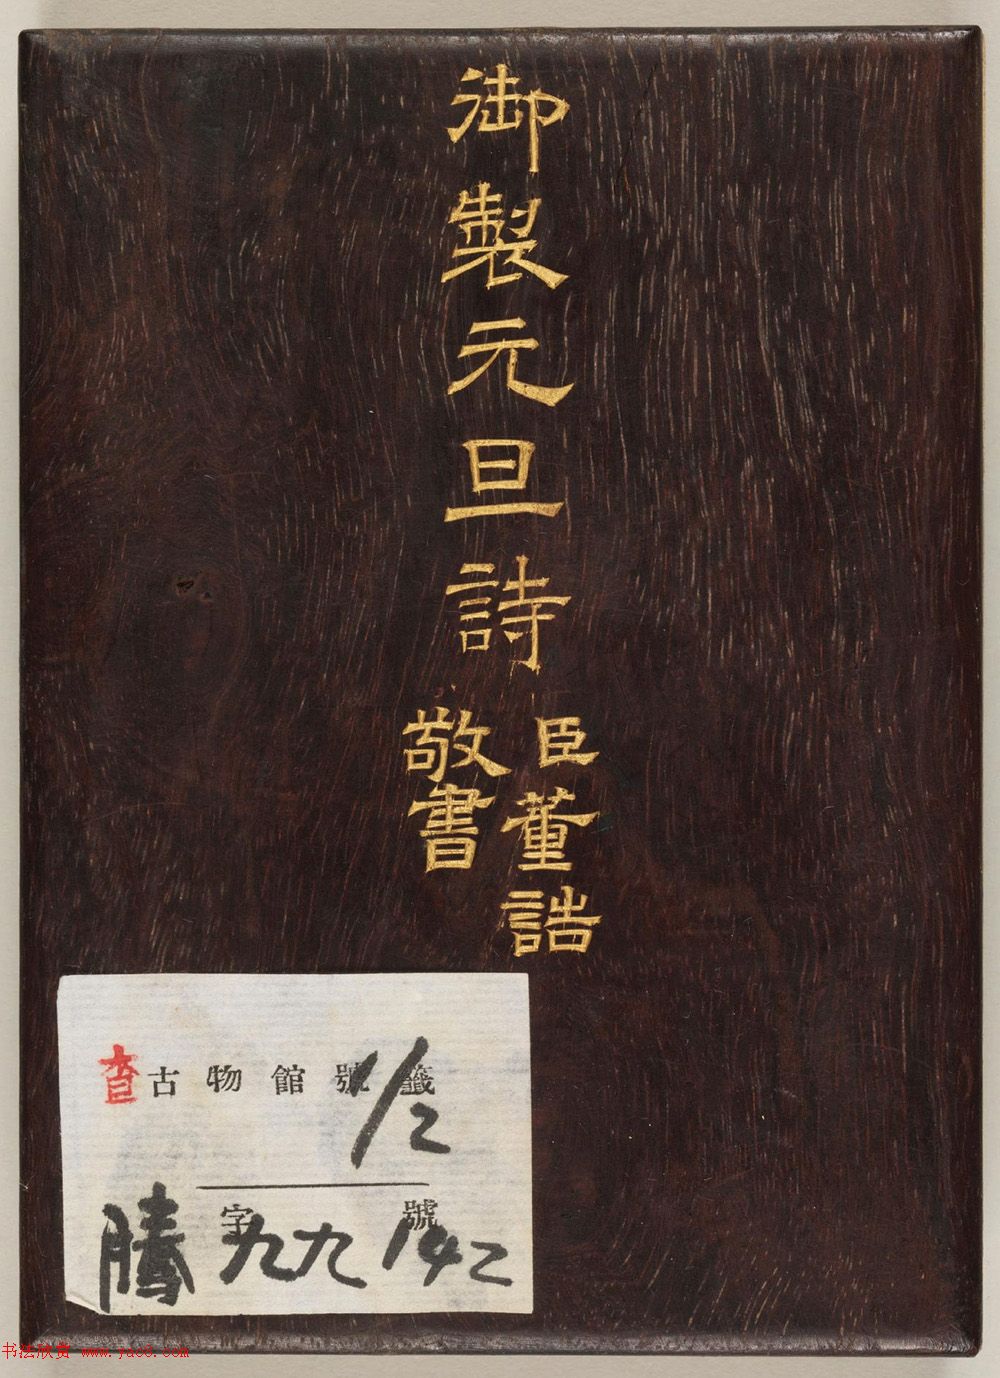 御製元旦詩
臣董誥
敬書
查
古物館號籤
1/2
騰字九九號
142
书法欣赏 www.yac8.com